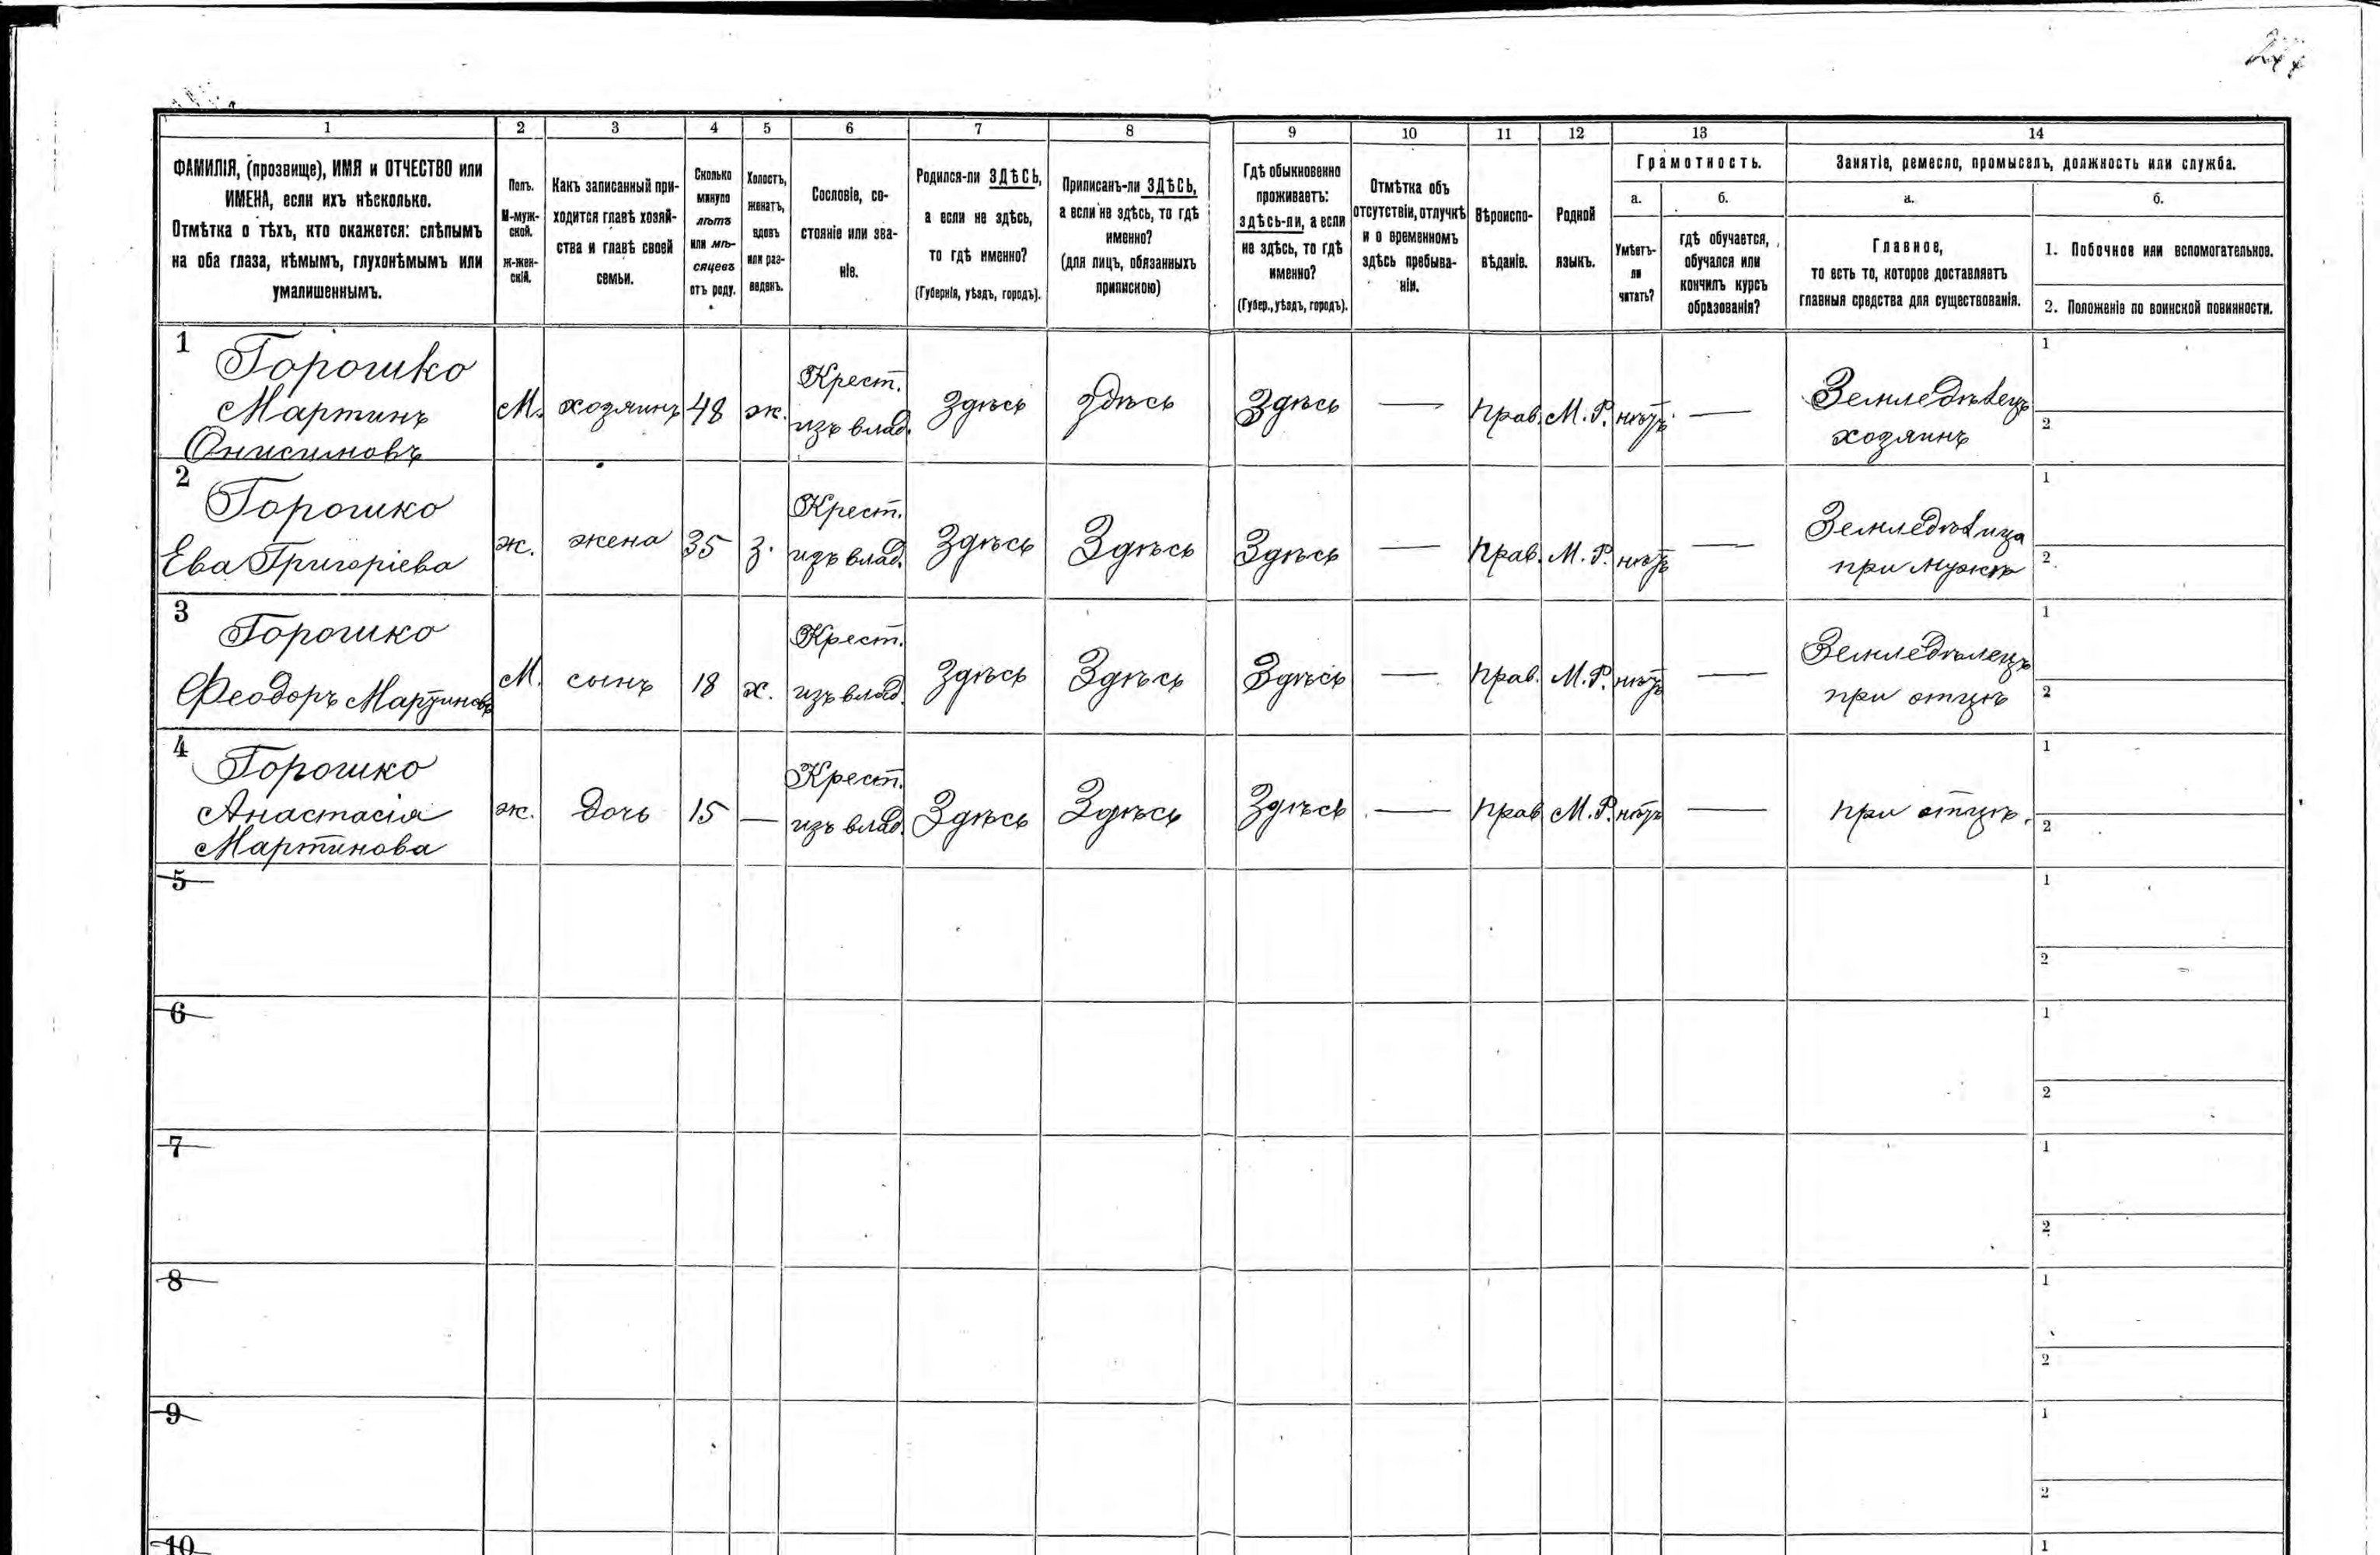 1 2 3 4 5 6 7 8 9 10 11 12 13 14
ФАМИЛІЯ, (прозвище), ИМЯ и ОТЧЕСТВО или
ИМЕНА, если ихъ нѣсколько.
Отмѣтка о тѣхъ, кто окажется: слѣпымъ
на оба глаза, нѣмымъ, глухонѣмымъ или
умалишеннымъ.
Полъ.
М-муж-
ской.
Ж-жен-
скій.
Какъ записанный при-
ходится главѣ хозяй-
ства и главѣ своей
семьи.
Сколько
минуло
лѣтъ
или мѣ-
сяцевъ
отъ роду.
Холостъ,
женатъ,
вдовъ
или раз-
веденъ.
Сословіе, со-
стояніе или зва-
ніе.
Родился-ли ЗДѢСЬ,
а если не здѣсь,
то гдѣ именно?
(Губернія, уѣздъ, городъ).
Приписанъ-ли ЗДѢСЬ,
а если не здѣсь, то гдѣ
именно?
(для лицъ, обязанныхъ
припискою)
Гдѣ обыкновенно
проживаетъ:
здѣсь-ли, а если
не здѣсь, то гдѣ
именно?
(Губер., уѣздъ, городъ).
Отмѣтка объ
отсутствіи, отлучкѣ
и о временномъ
здѣсь пребыва-
ніи.
Вѣроиспо-
вѣданіе.
Родной
языкъ.
Грамотность.
а.
Умѣетъ-
ли
читать?
б.
гдѣ обучается,
обучался или
кончилъ курсъ
образованія?
Занятіе, ремесло, промыселъ, должность или служба.
а.
Главное,
то есть то, которое доставляетъ
главныя средства для существованія.
б.
1. Побочное или вспомогательное.
2. Положеніе по воинской повинности.
1
Горошко
Мартинъ
Онисимовъ
М. хозяинъ 48 ж.
Крест.
изъ влад.
Здѣсь здѣсь Здѣсь — Прав. М. Р. нѣтъ —
Земледѣлецъ
хозяинъ
1
2
2
Горошко
Ева Григоріева
ж. жена 35 з.
Крест.
изъ влад.
Здѣсь Здѣсь Здѣсь — Прав. М. Р. нѣтъ —
Земледѣлица
при мужѣ
1
2
3
Горошко
Феодоръ Мартиновъ
М. сынъ 18 х.
Крест.
изъ влад.
Здѣсь Здѣсь Здѣсь — Прав. М. Р. нѣтъ —
Земледѣлецъ
при отцѣ
1
2
4
Горошко
Анастасія
Мартинова
ж. Дочь 15 —
Крест.
изъ влад.
Здѣсь Здѣсь Здѣсь — Прав М. Р. нѣтъ —
при отцѣ.
1
2
5
1
2
6
1
2
7
1
2
8
1
2
9
1
2
10
1